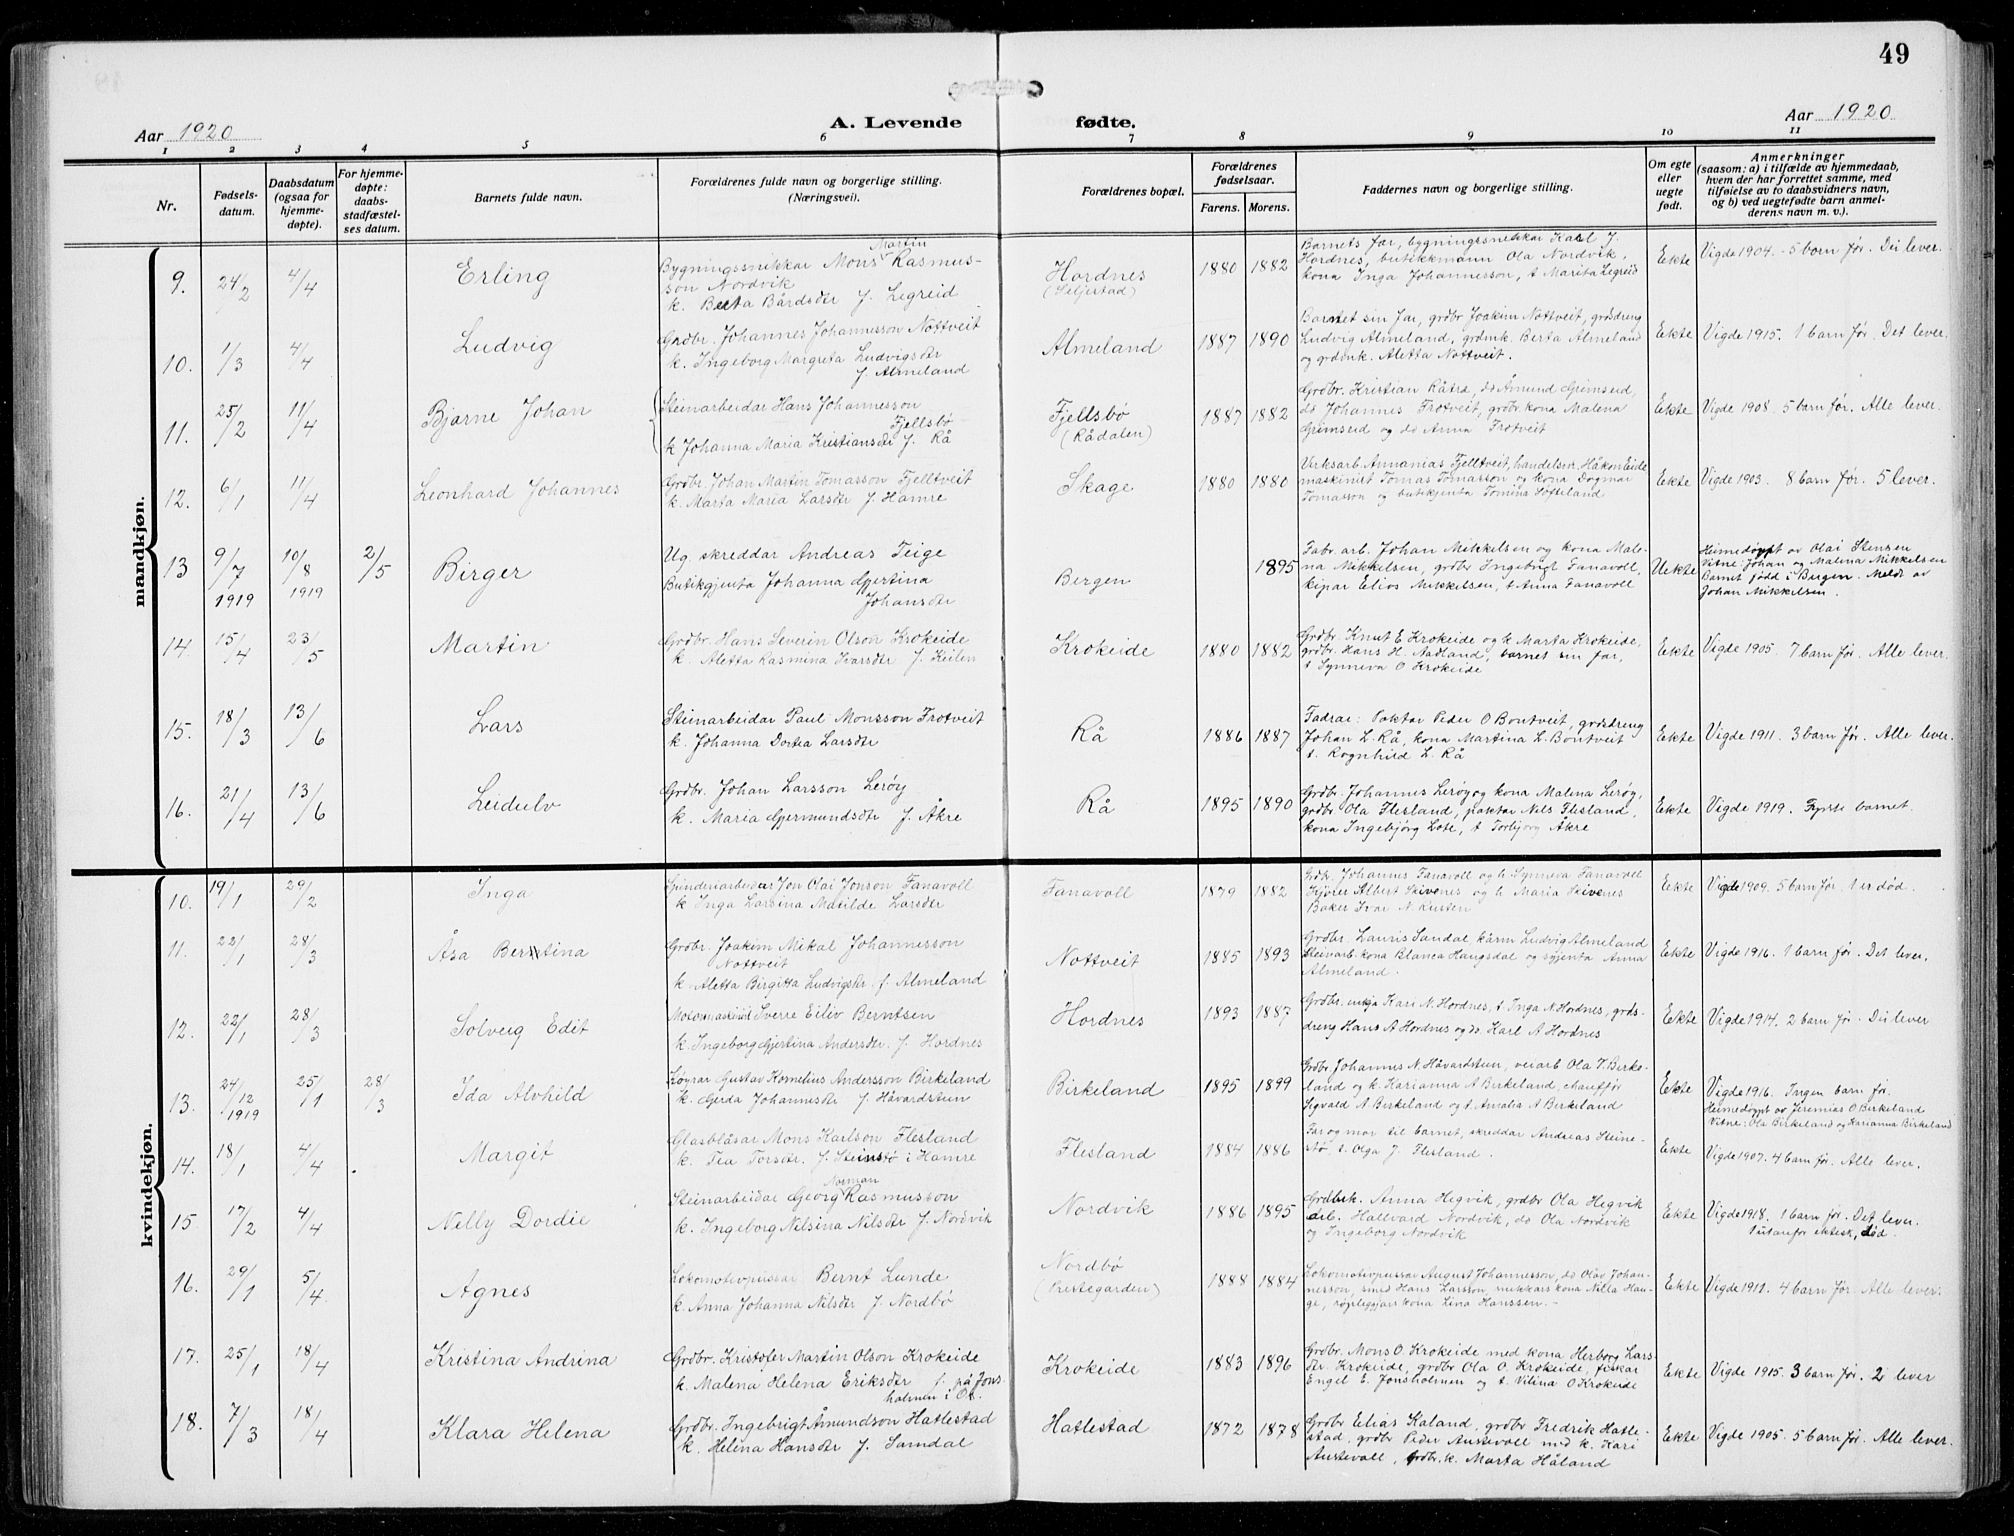 49
Aar 1920
A. Levende fødte.
Aar 1920
1 2 3 4 5 6 7 8 9 10 11
Nr.
Fødsels-datum.
Daabsdatum (ogsaa for hjemme-døpte).
For hjemme-døpte: daabs-stadfæstel-ses datum.
Barnets fulde navn.
Forældrenes fulde navn og borgerlige stilling.
(Næringsvei).
Forældrenes bopæl.
Forældrenes fødselsaar.
Farens. Morens.
Faddernes navn og borgerlige stilling.
Om egte eller uegte født.
Anmerkninger
(saasom: a) i tilfælde av hjemmedaab,
hvem der har forrettet samme, med
tilføielse av to daabsvidners navn,
og b) ved uegtefødte barn anmel-
derens navn m. v.).
mandkjøn.
9. 24/2 4/4 Erling
Bygningssnikkar Mons Martin Rasmus-
son Nordvik
k. Berta Bårdsdtr f. Legreid
Hordnes
(Seljestad)
1880 1882
Barnets far, bygningssnikkar Karl J.
Hordnes, butikkmann Ola Nordvik,
kona Inga Johannesson, t Marita Legreid
Ekte Vigde 1904. 5 barn før. Dei lever.
10. 1/3 4/4 Ludvig
Grdbr. Johannes Johannesson Nottveit
k. Ingeborg Margreta Ludvigsdtr
f. Almeland
Almeland
1887 1890
Barnet sin far, grdbr Joakim Nottveit, grdsdreng
Ludvig Almeland, grdmk. Berta Almeland
og grdmk. Aletta Nottveit.
Ekte Vigde 1915. 1 barn før. Det lever.
11. 25/2 11/4 Bjarne Johan
Steinarbeidar Hans Johannesson
Fjellsbø
k Johanna Maria Kristiansdtr f. Rå
Fjellsbø
(Rådalen)
1887 1882
Grdbr. Kristian Råtræ, do Åmund Grimseid,
do Johannes Trotveit, grdbr.kona Malena
Grimseid og do Anna Trotveit
Ekte Vigde 1908. 5 barn før. Alle lever.
12. 6/1 11/4 Leonhard Johannes
Grdbr. Johan Martin Tomasson Fjelltveit
k. Marta Maria Larsdtr f. Hamre
Skage
1880 1880
Verksarb. Annanias Fjelltveit, handelsm. Håkon Eide
maskinist Tomas Tomasson og kona Dagmar
Tomasson og butikjenta Tomina Søfteland
Ekte Vigde 1903. 8 barn før. 5 lever.
13 9/7 1919 10/8 1919 2/5 Birger
Ug. skreddar Andreas Teige
Butikgjenta Johanna Gjertina
Johansdtr
Bergen
1895
Fabr. arb. Johan Mikkelsen og kona Male-
na Mikkelsen, grdbr Ingebrigt Fanavoll,
kipar Elios Mikkelsen, t Anna Fanavoll
Uekte
Heimedøypt av Olai Stensen
Vitne: Johan og Malena Mikkelsen
Barnet fødd i Bergen. Meldt av
Johan Mikkelsen.
14. 15/4 23/5 Martin
Grdbr. Hans Severin Olson Krokeide
k. Aletta Rasmina Ivarsdtr f. Keilen
Krokeide
1880 1882
Grdbr. Knut E Krokeide og k Marta Krokeide,
grdbr. Hans H. Aadland, barnet sin far,
t Synneva O Krokeide
Ekte Vigde 1905. 7 barn før. Alle lever.
15. 18/3 13/6 Lars
Steinarbeidar Paul Monsson Trotveit
k. Johanna Dortea Larsdtr
Rå
1886 1887
Fadrar: Paktar Peder O Bontveit, grdsdreng
Johan L. Rå, kona Martina L. Bontveit
t. Rognhild L. Rå
Ekte Vigde 1911. 3 barn før. Alle lever.
16. 21/4 13/6 Leidulv
Grdbr. Johan Larsson Lerøy
k. Maria Gjermundsdtr f. Åkre
Rå
1895 1890
Grdbr. Johannes Lerøy og kona Malena Lerøy,
grdbr. Ola Flesland, paktar Nils Flesland,
kona Ingebjørg Lote, t Torbjørg Åkre
Ekte Vigde 1919. Fyrste barnet.
kvindekjøn.
10. 19/1 29/2 Inga
Spinderiarbeidar Jon Olai Jonson Fanavoll
k Inga Larsina Matilde Larsdtr
Fanavoll
1879 1882
Grdb. Johannes Fanavoll og h. Synneva Fanavoll
Albert Skivenes og h Maria Skivenes
Baker Ivar N.
Ekte Vigde 1909. 5 barn før. 1 er død.
11. 22/1 28/3 Åsa Berntina
Grdbr. Joakim Mikal Johannesson
Nottveit
k Aletta Birgitta Ludvigsdtr. f. Almeland
Nottveit
1885 1893
Grdbr. Lauris Sandal, kårm Ludvig Almeland
Steinarb.kona Blanca Haugsdal og syjenta Anna
Almeland.
Ekte Vigde 1916. 1 barn før. Det lever.
12. 22/1 28/3 Solveig Edit
Motormaskinist Sverre Eiliv Berntsen
k. Ingeborg Gjertina Andersdtr. f. Hordnes
Hordnes
1893 1887
Grdbr. enkja Kari N. Hordnes, t Inga N. Hordnes, grds-
dreng Hans A Hordnes og do. Karl A Hordnes
Ekte Vigde 1914. 2 barn før. Dei lever
13. 24/12 1919 25/1 28/3 Ida Alvhild
Køyrar Gustav Kornelius Andersson Birkeland
k. Gerda Johannesdtr f. Håvardstun
Birkeland
1895 1899
Grdbr. Johannes N. Håvardstun, veiarb Ola T. Birke-
land og k. Karianna A Birkeland, chauffør
Sigvald A Birkeland og t. Amalia A Birkeland
Ekte Vigde 1916. Ingen barn før.
Heimedøypt av Jeremias O Birkeland
Vitne: Ola Birkeland og Karianna Birkeland
14. 18/1 4/4 Margit
Glasblåsar Mons Karlson Flesland
k. Tea Torsdtr. f. Steinstø i Hamre
Flesland
1884 1886
Far og mor til barnet, skreddar Andreas Steine-
stø, t. Olga J. Flesland.
Ekte Vigde 1907. 4 barn før. Alle lever.
15. 17/2 4/4 Nelly Dordie
Steinarbeidar Georg Norman Rasmusson
k. Ingeborg Nilsina Nilsdtr f. Nordvik
Nordvik
1886 1895
Grdbrk. Anna Hegvik, grdbr Ola Hegvik
arb. Hallvard Nordvik, do Ola Nordvik
og Ingeborg Nordvik
Ekte Vigde 1918. 1 barn før. Det lever.
1 utanfor ektesk, død.
16. 29/1 5/4 Agnes
Lokomotivpussar Bernt Lunde
k. Anna Johanna Nilsdtr f. Nordbø
Nordbø
(Prestegarden)
1888 1884
Lokomotivpussar August Johannesson, do Olav Johan-
nesson, smed Hans Larsson, snikkars kona Nilla Hau-
ge, røyleggjars kona Lina Hanssen.
Ekte Vigde 1911. 4 barn før. Alle lever.
17. 25/1 18/4 Kristina Andrina
Grdbr. Kristofer Martin Olson Krokeide
k. Malena Helena Eriksdtr f. på Jons-
holmen i Os.
Krokeide
1883 1896
Grdbr. Mons O. Krokeide med kona Herborg Lars-
dtr. Krokeide, grdbr Ola O. Krokeide, fiskar
Engel E. Jonsholmen og t. Vilina O Krokeide
Ekte Vigde 1915. 3 barn før. 2 lever
18. 7/3 18/4 Klara Helena
Grdbr. Ingebrigt Åmundson Hatlestad
k. Helena Hansdtr f. Samdal
Hatlestad
1872 1878
Grdbr Elias Kaland, grdbr Fredrik Hatle-
stad, grdbr Peder Austevoll med k. Kari
Austevoll, grdbr. k. Marta Håland
Ekte Vigde 1905. 5 barn før. Alle lever.